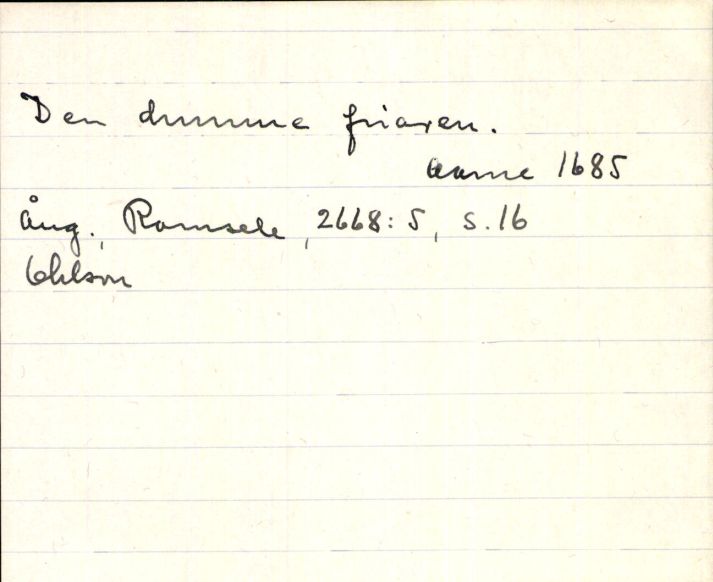 Den dumme friaren.
Aarne 1685
Ång., Ramsele, 2668:5, s.16
Ohlson